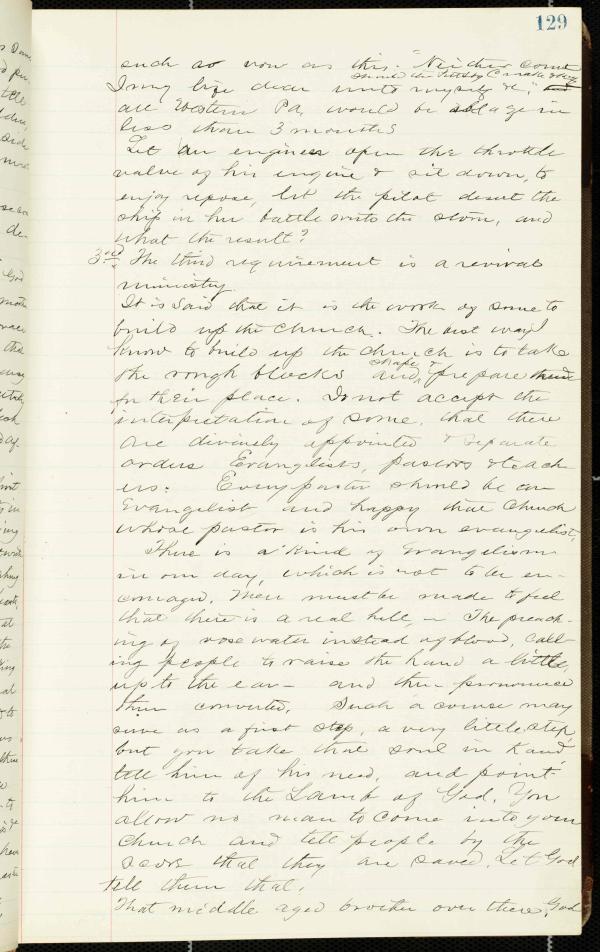 129
such as vow as this. "Neither count
should the Pittsbg C make & say
I my life dear unto myself &c,"
all Western Pa, would be ablaze in
less than 3 months
Let an engineer open the throttle
valve of his engine & sit down, to
enjoy repose, let the pilot desert the
ship in her battle with the storm, and
what the result?
3rd The third requirement is a revival
ministry
It is said that it is the work of some to
build up the church. The best way I
know to build up the church is to take
the rough blocks shape & and prepare them
for their place. Do not accept the
interpretation of some, that there
are divinely appointed & separate
orders Evangelists, pastors & teach
ers. Every pastor should be an
Evangelist and happy that church
whose pastor is his own evangelist,
There is a kind of evangelism
in our day, which is not to be en-
couraged. Men must be made to feel
that there is a real hell, - The preach-
ing of rose water instead of blood, call
ing people to raise the hand a little,
up to the ear - and then pronounce
them converted. Such a course may
serve as a first step, a very little step,
but you take that soul in hand,
tell him of his need, and point
him to the Lamb of God. You
allow no man to come into your
church and tell people by the
score that they are saved. Let God
tell them that.
That middle aged brother over there, God